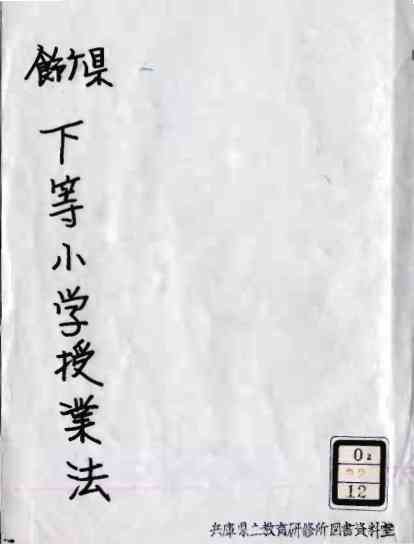 飾广県
下等小学授業法
O2
22
12
兵庫県立教育研修所図書資料室